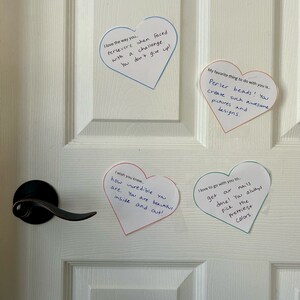 I love the way you...
persevere when faced
with a challenge
you don't give up!
My favorite thing to do with you is...
Perler beads! You
create such awesome
pictures and
designs.
I wish you knew...
how incredible you
are. You are beautiful
inside and out!
I love to go with you to...
get our nails
done! You always
pick the
prettiest
colors